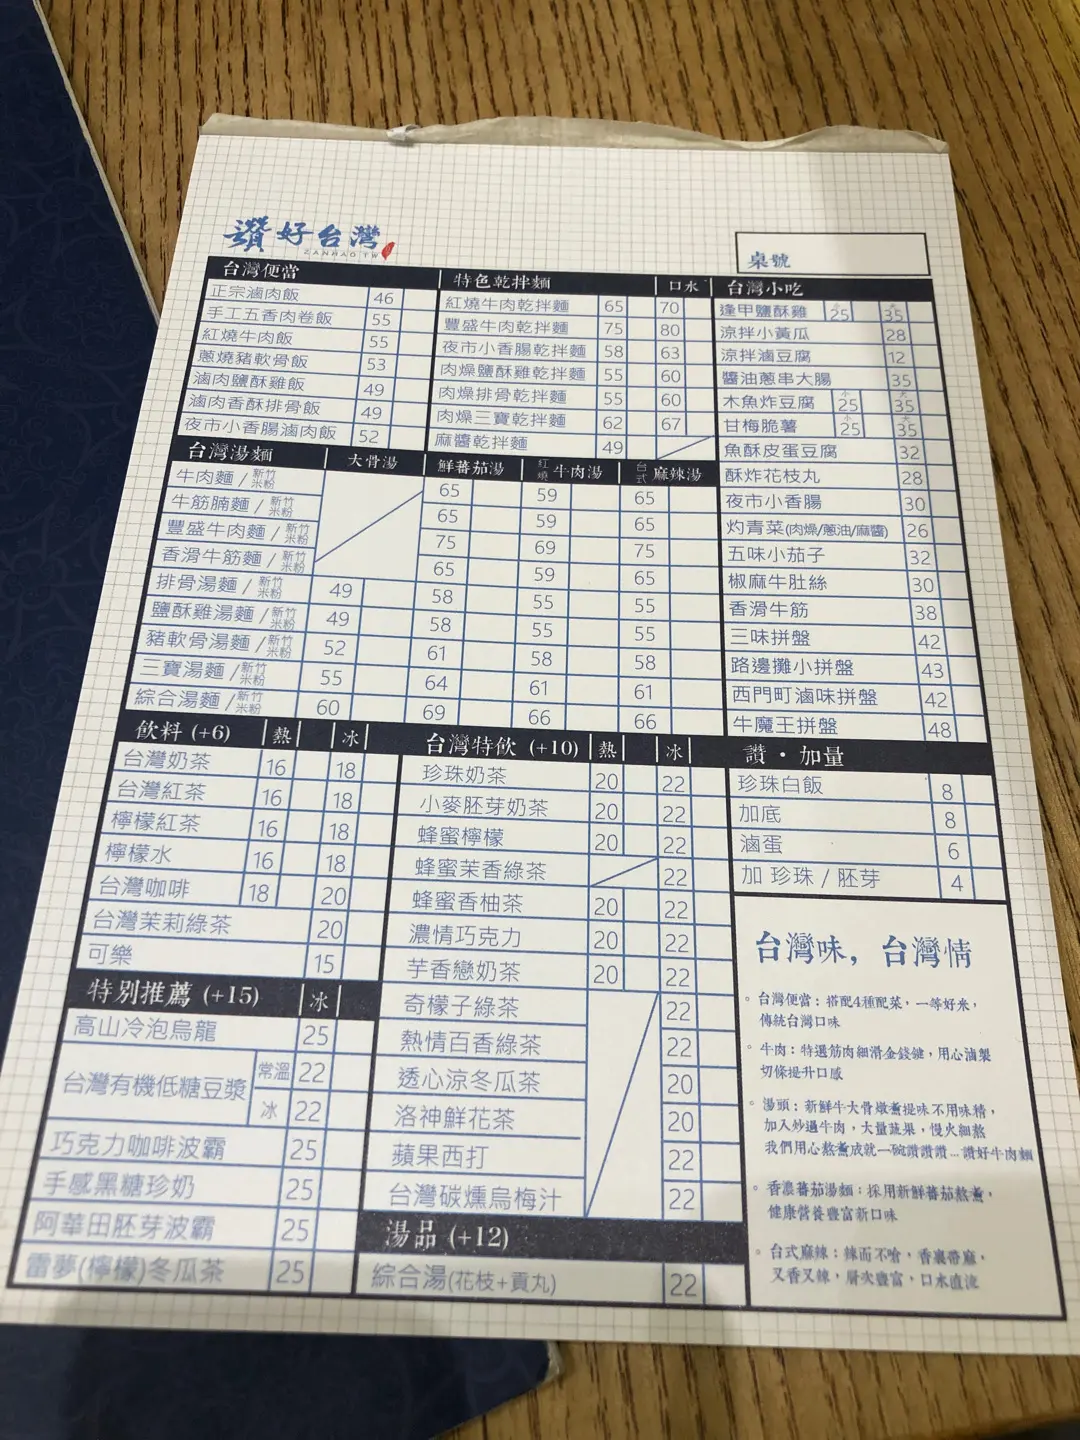 讚好台灣
ZANHAO.TW
桌號
台灣便當
正宗滷肉飯 46
手工五香肉卷飯 55
紅燒牛肉飯 55
蔥燒豬軟骨飯 53
滷肉鹽酥雞飯 49
滷肉香酥排骨飯 49
夜市小香腸滷肉飯 52
特色乾拌麵 口水
紅燒牛肉乾拌麵 65 70
豐盛牛肉乾拌麵 75 80
夜市小香腸乾拌麵 58 63
肉燥鹽酥雞乾拌麵 55 60
肉燥排骨乾拌麵 55 60
肉燥三寶乾拌麵 62 67
麻醬乾拌麵 49
台灣小吃
逢甲鹽酥雞 小25 大35
涼拌小黃瓜 28
涼拌滷豆腐 12
醬油蔥串大腸 35
木魚炸豆腐 小25 大35
甘梅脆薯 小25 大35
魚酥皮蛋豆腐 32
酥炸花枝丸 28
夜市小香腸 30
灼青菜(肉燥/蔥油/麻醬) 26
五味小茄子 32
椒麻牛肚絲 30
香滑牛筋 38
三味拼盤 42
路邊攤小拼盤 43
西門町滷味拼盤 42
牛魔王拼盤 48
台灣湯麵 大骨湯 鮮蕃茄湯 紅燒牛肉湯 台式麻辣湯
牛肉麵/新竹米粉 65 59 65
牛筋腩麵/新竹米粉 65 59 65
豐盛牛肉麵/新竹米粉 75 69 75
香滑牛筋麵/新竹米粉 65 59 65
排骨湯麵/新竹米粉 49 58 55 55
鹽酥雞湯麵/新竹米粉 49 58 55 55
豬軟骨湯麵/新竹米粉 52 61 58 58
三寶湯麵/新竹米粉 55 64 61 61
綜合湯麵/新竹米粉 60 69 66 66
飲料 (+6) 熱 冰
台灣奶茶 16 18
台灣紅茶 16 18
檸檬紅茶 16 18
檸檬水 16 18
台灣咖啡 18 20
台灣茉莉綠茶 20
可樂 15
特別推薦 (+15) 冰
高山冷泡烏龍 25
台灣有機低糖豆漿 常溫 22
冰 22
巧克力咖啡波霸 25
手感黑糖珍奶 25
阿華田胚芽波霸 25
雷夢(檸檬)冬瓜茶 25
台灣特飲 (+10) 熱 冰
珍珠奶茶 20 22
小麥胚芽奶茶 20 22
蜂蜜檸檬 20 22
蜂蜜茉香綠茶 22
蜂蜜香柚茶 20 22
濃情巧克力 20 22
芋香戀奶茶 20 22
奇檬子綠茶 22
熱情百香綠茶 22
透心涼冬瓜茶 20
洛神鮮花茶 20
蘋果西打 22
台灣碳燻烏梅汁 22
湯品 (+12)
綜合湯(花枝+貢丸) 22
讚·加量
珍珠白飯 8
加底 8
滷蛋 6
加 珍珠 / 胚芽 4
台灣味，台灣情
。台灣便當：搭配4種配菜，一等好米，
傳統台灣口味
。牛肉：特選筋肉細滑金錢腱，用心滷製
切條提升口感
。湯頭：新鮮牛大骨燉薰提味不用味精，
加入炒過牛肉，大量蔬果，慢火細熬
我們用心熬薰成就一碗讚讚讚...讚好牛肉麵
。香濃蕃茄湯麵：採用新鮮蕃茄熬薰，
健康營養豐富新口味
。台式麻辣：辣而不嗆，香裏帶麻，
又香又辣，層次豐富，口水直流